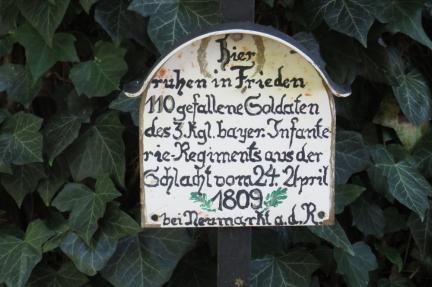 Hier
ruhen in Frieden
110 gefallene Soldaten
des 3. Kgl. bayer. Infante
rie-Regiments aus der
Schlacht vom 24. April
1809
bei Neumarkt a. d. R.